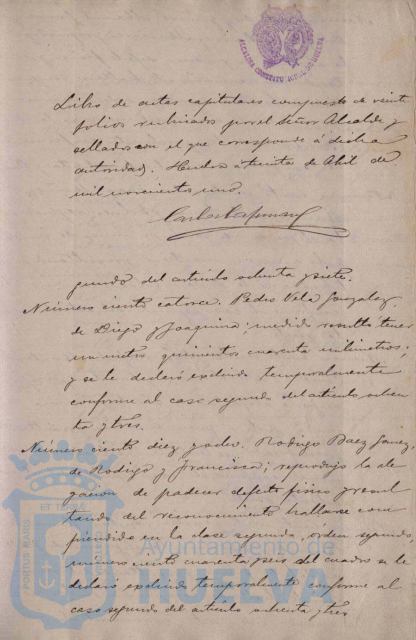 ALCALDIA CONSTITUCIONAL HUELVA
Libro de actas capitulares compuesto de veinte
folios rubricados por el Señor Alcalde y
sellados con el que corresponde á dicha
autoridad. Huelva á treinta de Abril de
mil novecientos uno.
gundo del artículo ochenta y siete.
Número ciento catorce. Pedro Vela Gonzalez,
de Diego y Joaquina; medido resultó tener
un metro quinientos cuarenta milímetros;
y se le declaró excluido temporalmente
conforme al caso segundo del artículo ochen
ta y tres.
Número ciento diez y ocho. Rodrigo Baez Gomez,
de Rodrigo y Francisca; reprodujo la ale
gacion de padecer defecto físico y resul
tando del reconocimiento hallarse com
prendido en la clase segunda, orden segundo,
número ciento cuarenta y seis del cuadro se le
declaró excluido temporalmente conforme al
caso segundo del artículo ochenta y tres
PORTUS MARIS ET TERRAE
Ayuntamiento de
HUELVA